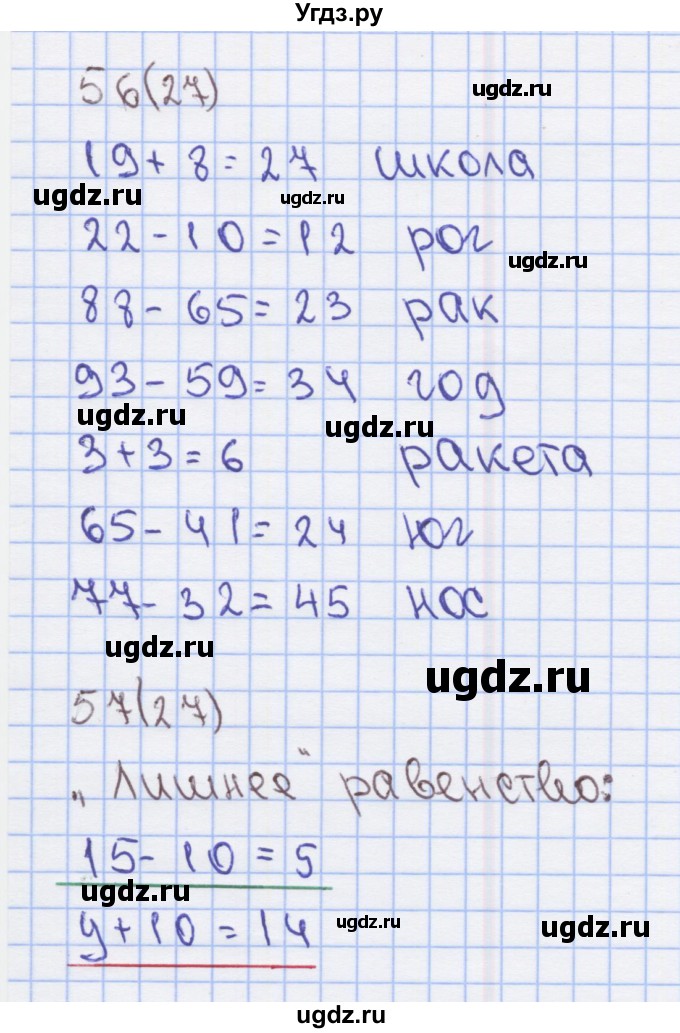 Угдз.ру
56(27)
ugdz.ru
19+8=27 школа
ugdz.ru
ugdz.ru
22-10=12 рог
ugdz.ru
88-65=23 рак
93-59=34 год
ugdz.ru
ugdz.ru
3+3=6 ракета
65-41=24 юг
77-32=45 нос
ugdz.ru
ugdz.ru
57(27)
„Лишнее" равенство:
15-10=5
ugdz.ru
у+10=14
ugdz.ru
ugdz.ru
ugdz.ru